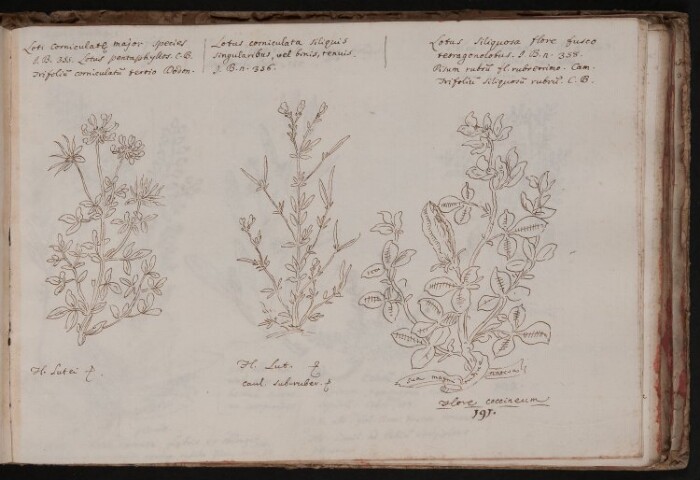 Loti corniculatę major species
J. B. 355. Lotus pentaphyllos. C. B.
Trifoliū corniculatū tertio Dodon.
Lotus corniculata siliquis
singularibus, vel binis, tenuis.
J. B. n. 356.
Lotus siliquosa flore fusco
tetragonolobus. J. B. n. 358.
Pisum rubrū fl. ruberrimo. Cam.
Trifoliū siliquosū rubrū. C. B.
Fl. Lutei ♀.
Fl. Lut. ♀
caul. subruber. ♀
flore coccineum
191.